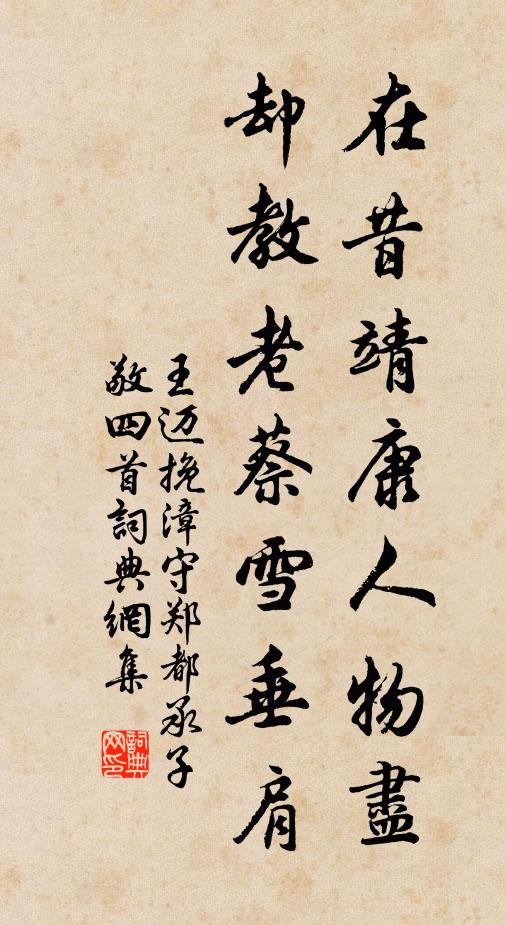 在昔靖康人物盡
却教老蔡雪垂肩
王迈挽漳守郑都承子
敬四首詞典網集
詞典網印